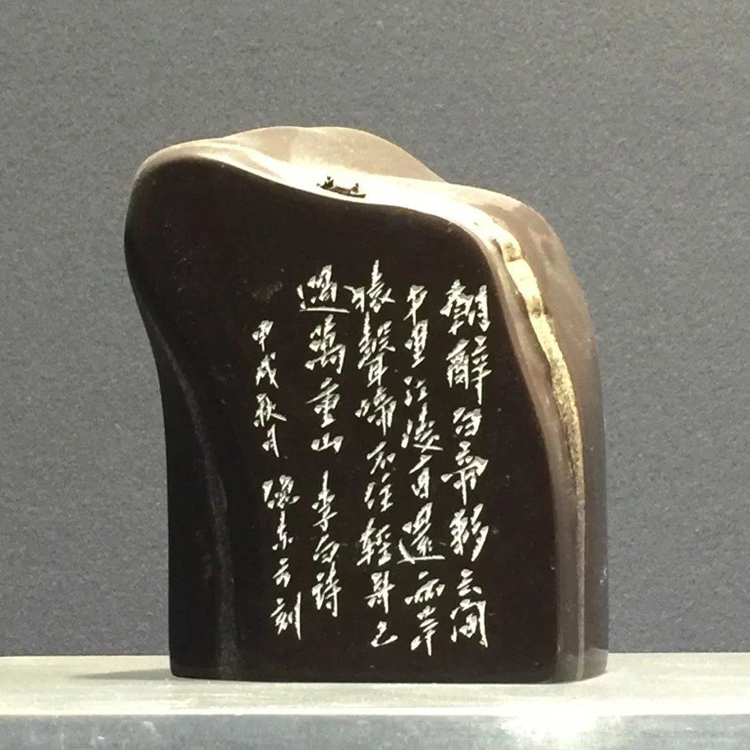 朝辭白帝彩云间
千里江陵一日還兩岸
猿聲啼不住輕舟已
過萬重山 李白詩
甲戌秋月 东 刻